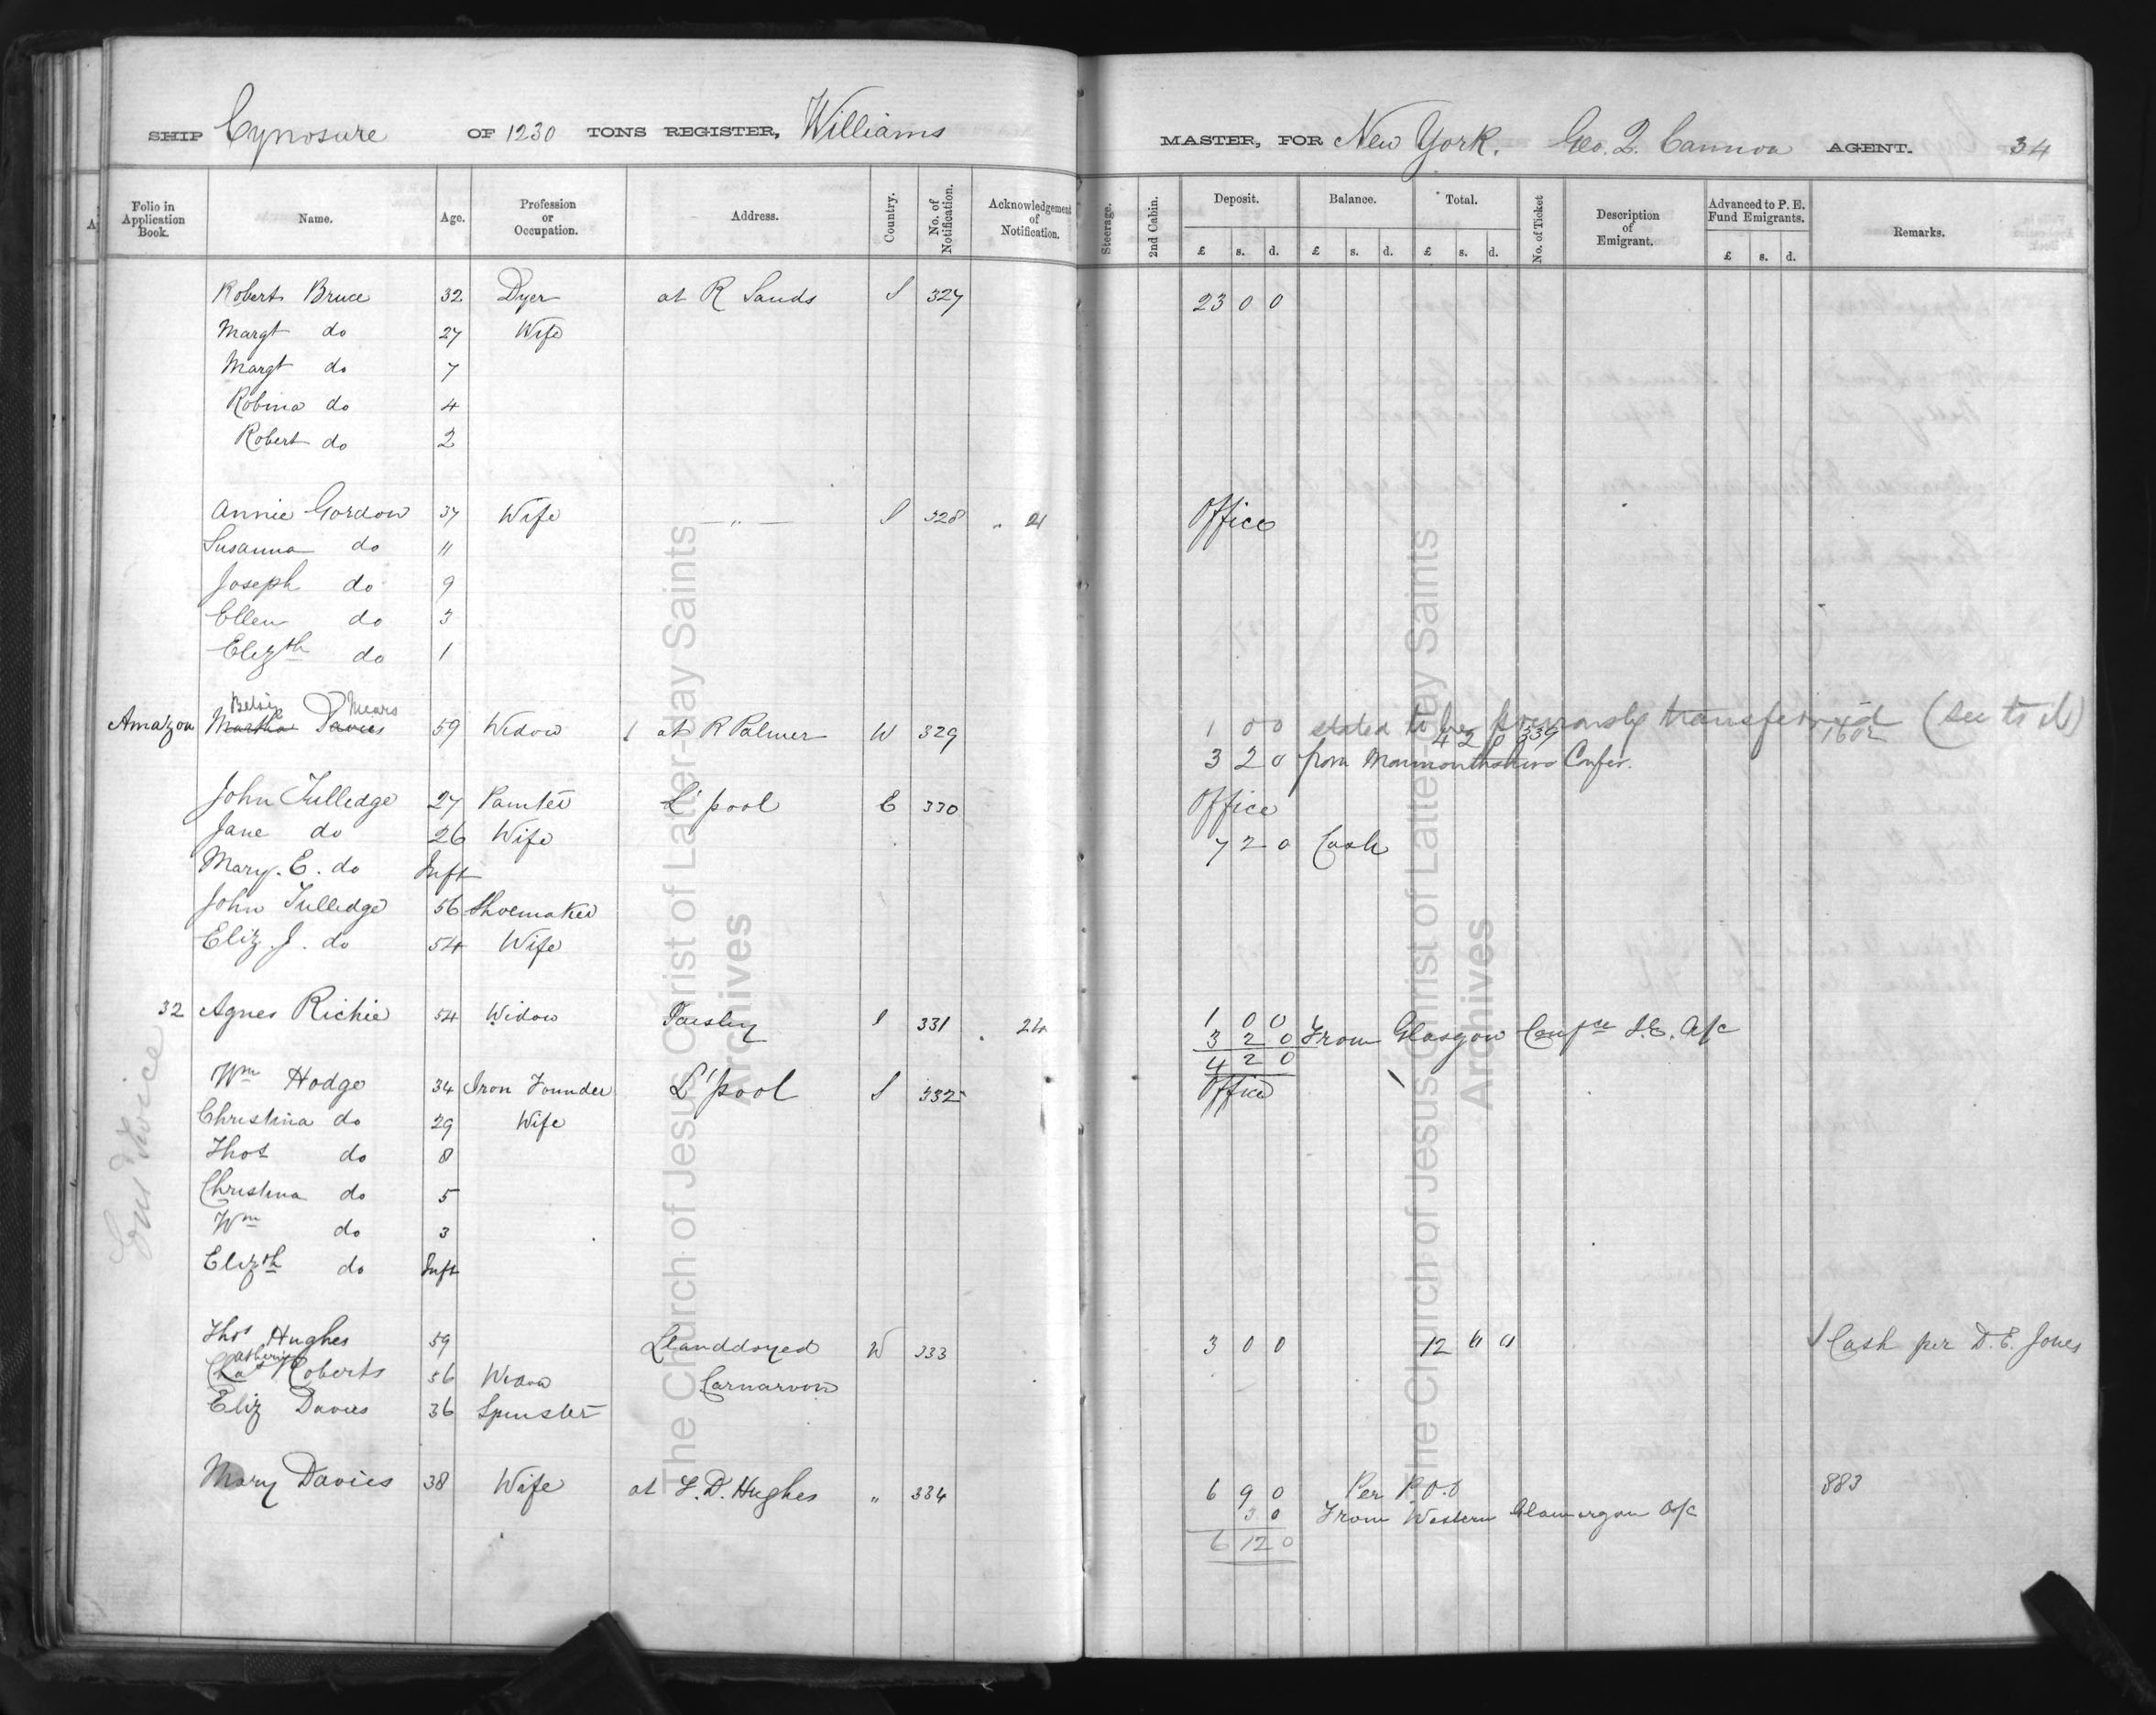 SHIP Cynosure OF 1230 TONS REGISTER, Williams MASTER, FOR New York. Geo. Q. Cannon AGENT. 34
Folio in Application Book. Name. Age. Profession or Occupation. Address. Country. No. of Notification. Acknowledgement of Notification. Steerage. 2nd Cabin. Deposit. £ s. d. Balance. £ s. d. Total. £ s. d. No. of Ticket Description of Emigrant. Advanced to P. E. Fund Emigrants. £ s. d. Remarks.
Robert Bruce 32 Dyer at R Sands S 327 23 0 0
Margt do 27 Wife
Margt do 7
Robina do 4
Robert do 2
Annie Gordon 37 Wife — „ — S 328 „ 21 Office
Susanna do 11
Joseph do 9
Ellen do 3
Elizth do 1
Betsy Mears
Amazon Martha Davies 59 Widow at R Palmer W 329 1 0 0 stated to be previously transferred (see to it)
42 p 339 1602
3 2 0 from Monmouthshire Confer.
John Tulledge 27 Painter L'pool E 330 Office
Jane do 26 Wife 7 2 0 Cash
Mary. E. do Inft
John Tulledge 56 Shoemaker
Eliz. J. do 54 Wife
32 Agnes Richie 54 Widow Paisley S 331 . 24 1 0 0
3 2 0 From Glasgow Confce I.E. A/c
4 2 0
Wm Hodge 34 Iron Founder L'pool S 332 Office
Christina do 29 Wife
Thos do 8
Christina do 5
Wm do 3
Elizth do Inft
Thos Hughes 59 Llanddoyed W 333 3 0 0 12 " " Cash per D. E. Jones
Catherine
Chas Roberts 56 Widow Carnarvon
Eliz Davies 36 Spinster
Mary Davies 38 Wife at T. D. Hughes „ 334 6 9 0 Per P.O.O 883
3 0 From Western Glamorgan A/c
6 12 0
The Church of Jesus Christ of Latter-day Saints
Archives
The Church of Jesus Christ of Latter-day Saints
Archives